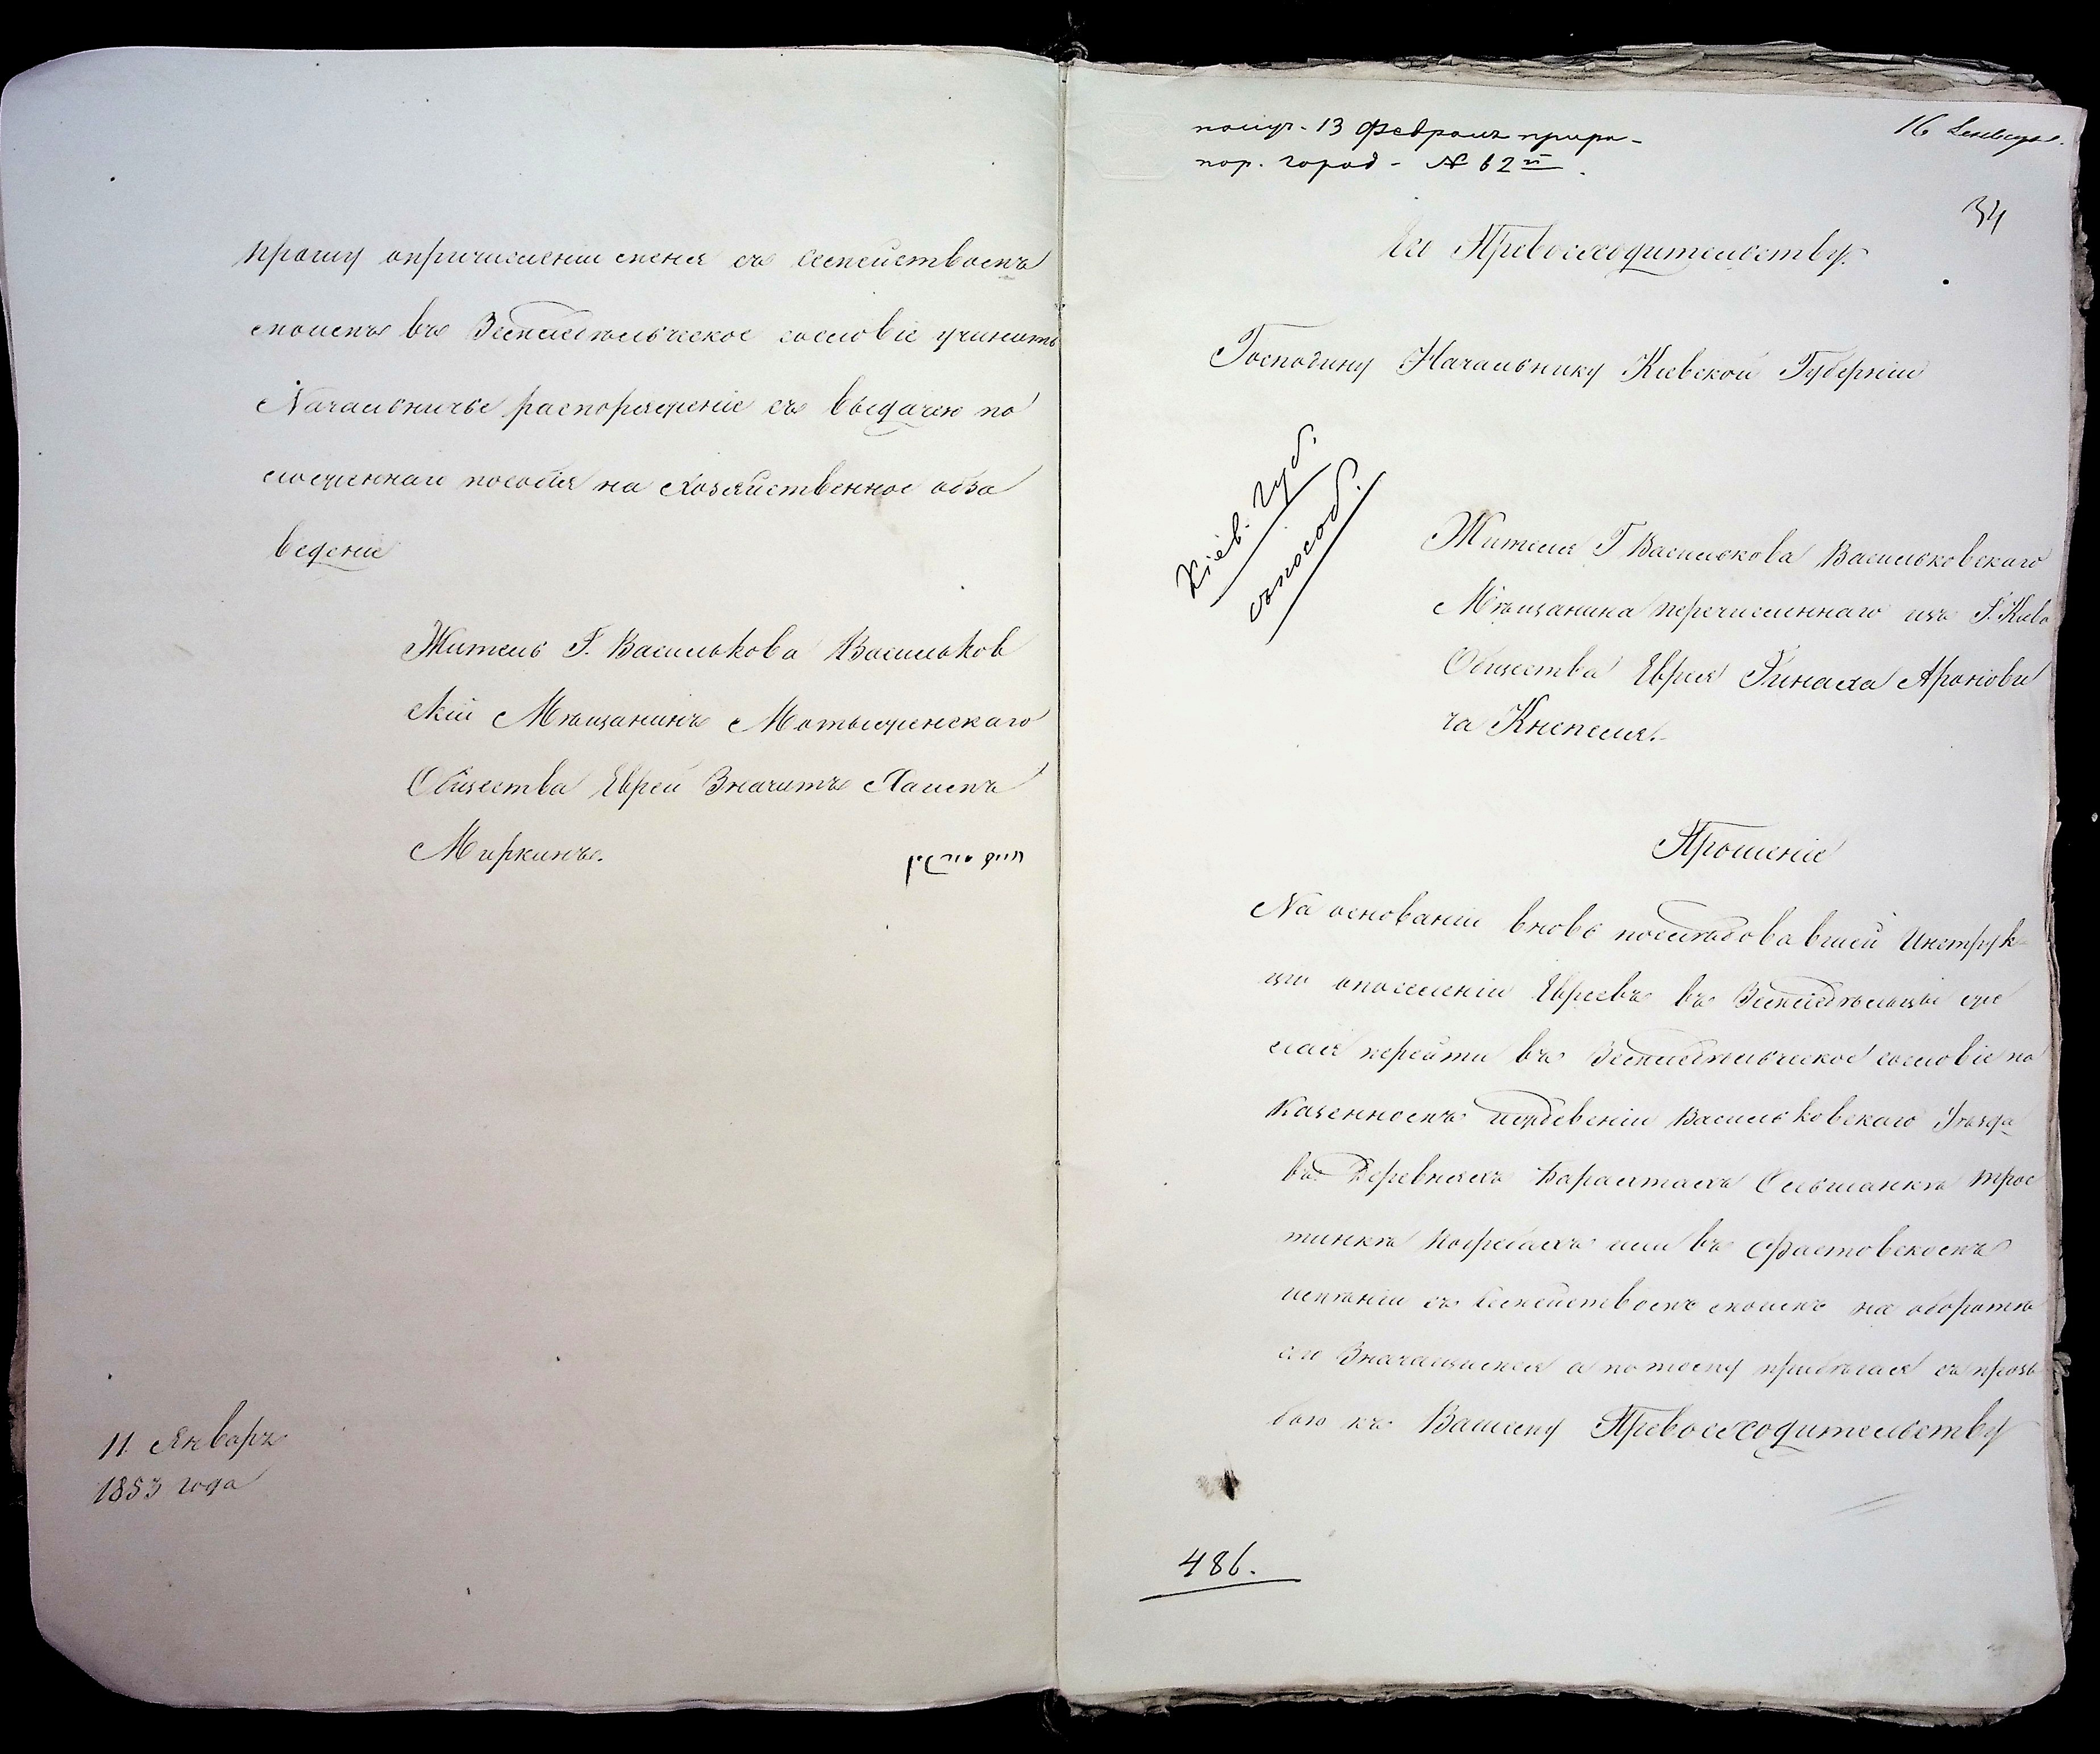 прошу опричисленіи меня съ семействомъ
моимъ въ Земледѣльческое сословіе учинить
Начальничье распоряженіе съ выдачею по
ложеннаи пособія на хозяйственное обза
веденіе
Житель Г. Василькова Васильков
скій Мѣщанинъ Мотыженскаго
Общества Еврей Значитъ Хаимъ
Миркинъ.
11 Январъ
1853 года
получ. 13 Февраля
пор. город - № 62
16 Января.
34
Его Превосходительству
Господину Начальнику Кіевской Губерніи
Кіев. Губ.
Жителя Г Василькова Васильковскаго
Мѣщанина перечисленнаго изъ Г. Кіева
Общества Еврея Пинхаса Ароновы
ча
Прошеніе
На основаніи вновь послѣдовавшей Инструк-
ціи опоселеніи Евреевъ въ Земледѣльцы же
лая перейти въ Земледѣльческое сословіе на
Казенномъ Васильковскаго Уѣзда
въ Деревняхъ Барахтахъ Ольшанкѣ Трос
тинкѣ Погребахъ или въ Фастовскомъ
имѣніи съ Семействомъ моимъ на оборотѣ
сего Значащимся а потому прибѣгая съ прозь
бою къ Вашему Превосходительству
486.